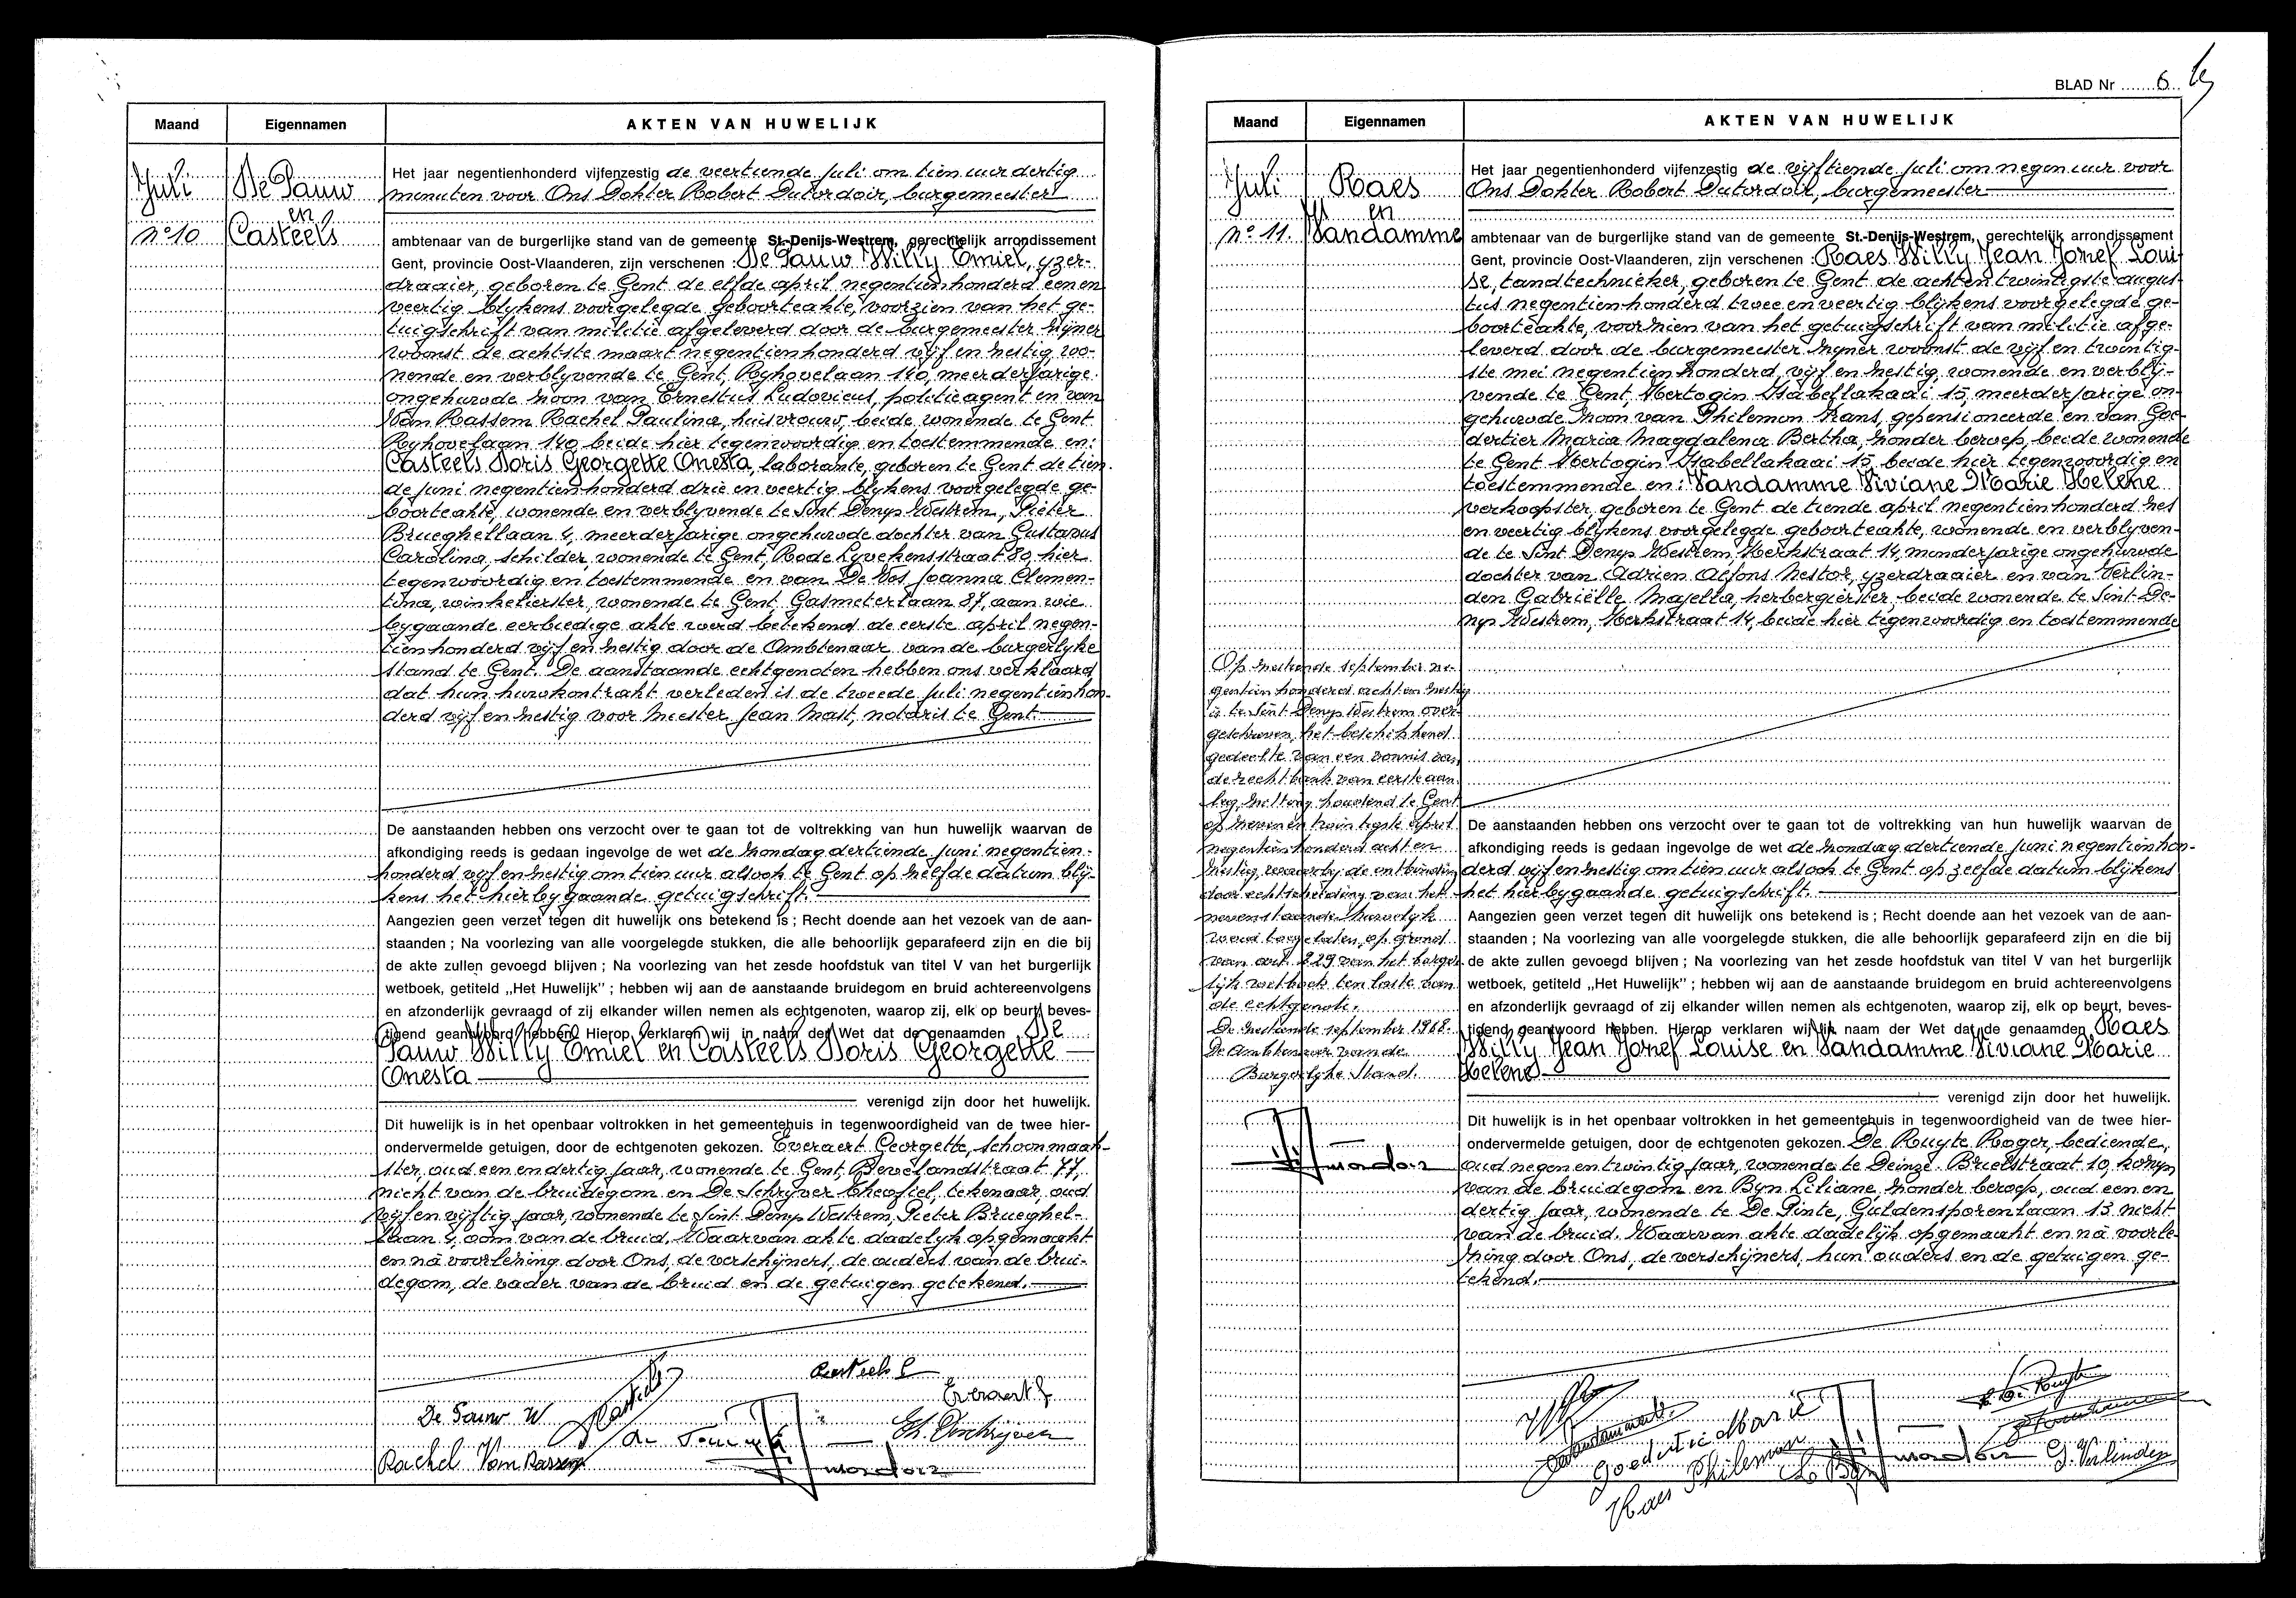 Maand
Eigennamen
AKTEN VAN HUWELIJK
Juli
De Pauw
en
n° 10
Casteels
Het jaar negentienhonderd vijfenzestig de veertiende juli om tien uur dertig
minuten voor Ons Dokter Robert Dutordoir, burgemeester
ambtenaar van de burgerlijke stand van de gemeente St.-Denijs-Westrem, gerechtelijk arrondissement
Gent, provincie Oost-Vlaanderen, zijn verschenen : De Pauw Willy Emiel, yzer-
draaier, geboren te Gent de elfde april negentienhonderd een en
veertig blykens voorgelegde geboorteakte, voorzien van het ge-
tuigschrift van militie afgeleverd door de burgemeester zijner
woonst de achtste maart negentienhonderd vijf en zestig wo-
nende en verblyvende te Gent, Ryhovelaan 140, meerderjarige
ongehuwde zoon van Ernestus Ludovicus, politieagent en van
Van Rassem Rachel Paulina, huisvrouw, beide wonende te Gent
Ryhovelaan 140 beide hier tegenwoordig en toestemmende en:
Casteels Doris Georgette Onesta, laborante, geboren te Gent de tien-
de juni negentienhonderd drie en veertig blykens voorgelegde ge-
boorteakte, wonende en verblyvende te Sint Denys Westrem, Pieter
Brueghellaan 4, meerderjarige ongehuwde dochter van Gustavus
Carolina, schilder, wonende te Gent, Rode Lyvekensstraat 80, hier
tegenwoordig en toestemmende en van De Vos Joanna Clemen-
tina, winkelierster, wonende te Gent, Gasmeterlaan 87, aan wie
bygaande eerbiedige akte werd betekend de eerste april negen-
tienhonderd vijf en zestig door de Ambtenaar van de burgerlyke
stand te Gent. De aanstaande echtgenoten hebben ons verklaard
dat hun huwkontrakt verleden is de tweede juli negentienhon-
derd vijf en zestig voor Meester Jean Mast, notaris te Gent.
De aanstaanden hebben ons verzocht over te gaan tot de voltrekking van hun huwelijk waarvan de
afkondiging reeds is gedaan ingevolge de wet de zondag dertiende juni negentien-
honderd vijf en zestig om tien uur alsook te Gent op zelfde datum blij-
kens het hierbygaande getuigschrift.
Aangezien geen verzet tegen dit huwelijk ons betekend is ; Recht doende aan het vezoek van de aan-
staanden ; Na voorlezing van alle voorgelegde stukken, die alle behoorlijk geparafeerd zijn en die bij
de akte zullen gevoegd blijven ; Na voorlezing van het zesde hoofdstuk van titel V van het burgerlijk
wetboek, getiteld ,,Het Huwelijk" ; hebben wij aan de aanstaande bruidegom en bruid achtereenvolgens
en afzonderlijk gevraagd of zij elkander willen nemen als echtgenoten, waarop zij, elk op beurt, beves-
tigend geantwoord hebben. Hierop verklaren wij in naam der Wet dat de genaamden De
Pauw Willy Emiel en Casteels Doris Georgette
Onesta
verenigd zijn door het huwelijk.
Dit huwelijk is in het openbaar voltrokken in het gemeentehuis in tegenwoordigheid van de twee hier-
ondervermelde getuigen, door de echtgenoten gekozen. Everaert Georgette, schoonmaak-
ster, oud een en dertig jaar, wonende te Gent, Bevelandstraat 77,
nicht van de bruidegom en De Schryver Theofiel, tekenaar, oud
vijf en vijftig jaar, wonende te Sint Denys Westrem, Pieter Brueghel-
laan 4, oom van de bruid. Waarvan akte dadelyk opgemaakt
en nà voorlezing door Ons, de verschijners, de ouders van de brui-
degom, de vader van de bruid en de getuigen getekend.
Casteels G
Everaert G
De Pauw W
DCasteels
Th. Deschrijver
Rachel Van Rassem
BLAD Nr 6
Maand
Eigennamen
AKTEN VAN HUWELIJK
Juli
Raes
en
n° 11.
Vandamme
Het jaar negentienhonderd vijfenzestig de vijftiende juli om negen uur voor
Ons Dokter Robert Dutordoir, burgemeester
ambtenaar van de burgerlijke stand van de gemeente St.-Denijs-Westrem, gerechtelijk arrondissement
Gent, provincie Oost-Vlaanderen, zijn verschenen : Raes Willy Jean Jozef Loui-
se, tandtechnieker, geboren te Gent de achtentwintigste augus-
tus negentienhonderd twee en veertig blijkens voorgelegde ge-
boorteakte, voorzien van het getuigschrift van militie afge-
leverd door de burgemeester zijner woonst de vijf en twintig-
ste mei negentienhonderd vijf en zestig, wonende en verbly-
vende te Gent, Hertogin Isabellakaai 15, meerderjarige on-
gehuwde zoon van Philemon Frans, gepensioneerde en van Goe-
dertier Maria Magdalena Bertha, zonder beroep, beide wonende
te Gent Hertogin Isabellakaai 15, beide hier tegenwoordig en
toestemmende en : Vandamme Viviane Marie Helene
verkoopster, geboren te Gent de tiende april negentienhonderd zes
en veertig blijkens voorgelegde geboorteakte, wonende en verblyven-
de te Sint Denys Westrem, Kerkstraat 14, minderjarige ongehuwde
dochter van Adrien Alfons Nestor, yzerdraaier en van Verlin-
den Gabriëlle Majella, herbergierster, beide wonende te Sint-De-
nys Westrem, Kerkstraat 14, beide hier tegenwoordig en toestemmende
Op zestiende september ne-
gentien honderd acht en zestig
is te Sint Denys Westrem over-
geschreven, het beschikkend
gedeelte van een vonnis van
de rechtbank van eerste aan-
leg, zitting houdend te Gent
op zevenentwintigste april
negentienhonderd acht en
zestig, waarby de ontbinding
door echtscheiding van het
nevenstaande huwelyk
werd toegelaten, op grond
van art. 229 van het burger-
lijk wetboek ten laste van
de echtgenote.
De zestiende september 1968.
De Ambtenaar van de
Burgerlyke Stand.
De aanstaanden hebben ons verzocht over te gaan tot de voltrekking van hun huwelijk waarvan de
afkondiging reeds is gedaan ingevolge de wet de zondag dertiende juni negentienhon-
derd vijf en zestig om tien uur alsook te Gent op zelfde datum blijkens
het hierbygaande getuigschrift.
Aangezien geen verzet tegen dit huwelijk ons betekend is ; Recht doende aan het vezoek van de aan-
staanden ; Na voorlezing van alle voorgelegde stukken, die alle behoorlijk geparafeerd zijn en die bij
de akte zullen gevoegd blijven ; Na voorlezing van het zesde hoofdstuk van titel V van het burgerlijk
wetboek, getiteld ,,Het Huwelijk" ; hebben wij aan de aanstaande bruidegom en bruid achtereenvolgens
en afzonderlijk gevraagd of zij elkander willen nemen als echtgenoten, waarop zij, elk op beurt, beves-
tigend geantwoord hebben. Hierop verklaren wij in naam der Wet dat de genaamden Raes
Willy Jean Jozef Louise en Vandamme Viviane Marie
Helene
verenigd zijn door het huwelijk.
Dit huwelijk is in het openbaar voltrokken in het gemeentehuis in tegenwoordigheid van de twee hier-
ondervermelde getuigen, door de echtgenoten gekozen. De Ruyte Roger, bediende,
oud negen en twintig jaar, wonende te Deinze. Brielstraat 10, kozyn
van de bruidegom en Byn Liliane, zonder beroep, oud een en
dertig jaar, wonende te De Pinte, Guldensporenlaan 13 nicht
van de bruid. Waarvan akte dadelijk opgemaakt en nà voorle-
zing door Ons, de verschijners, hun ouders en de getuigen ge-
tekend.
Goedertier Maria
Raes Philemon
L. Byn
G. Verlinden